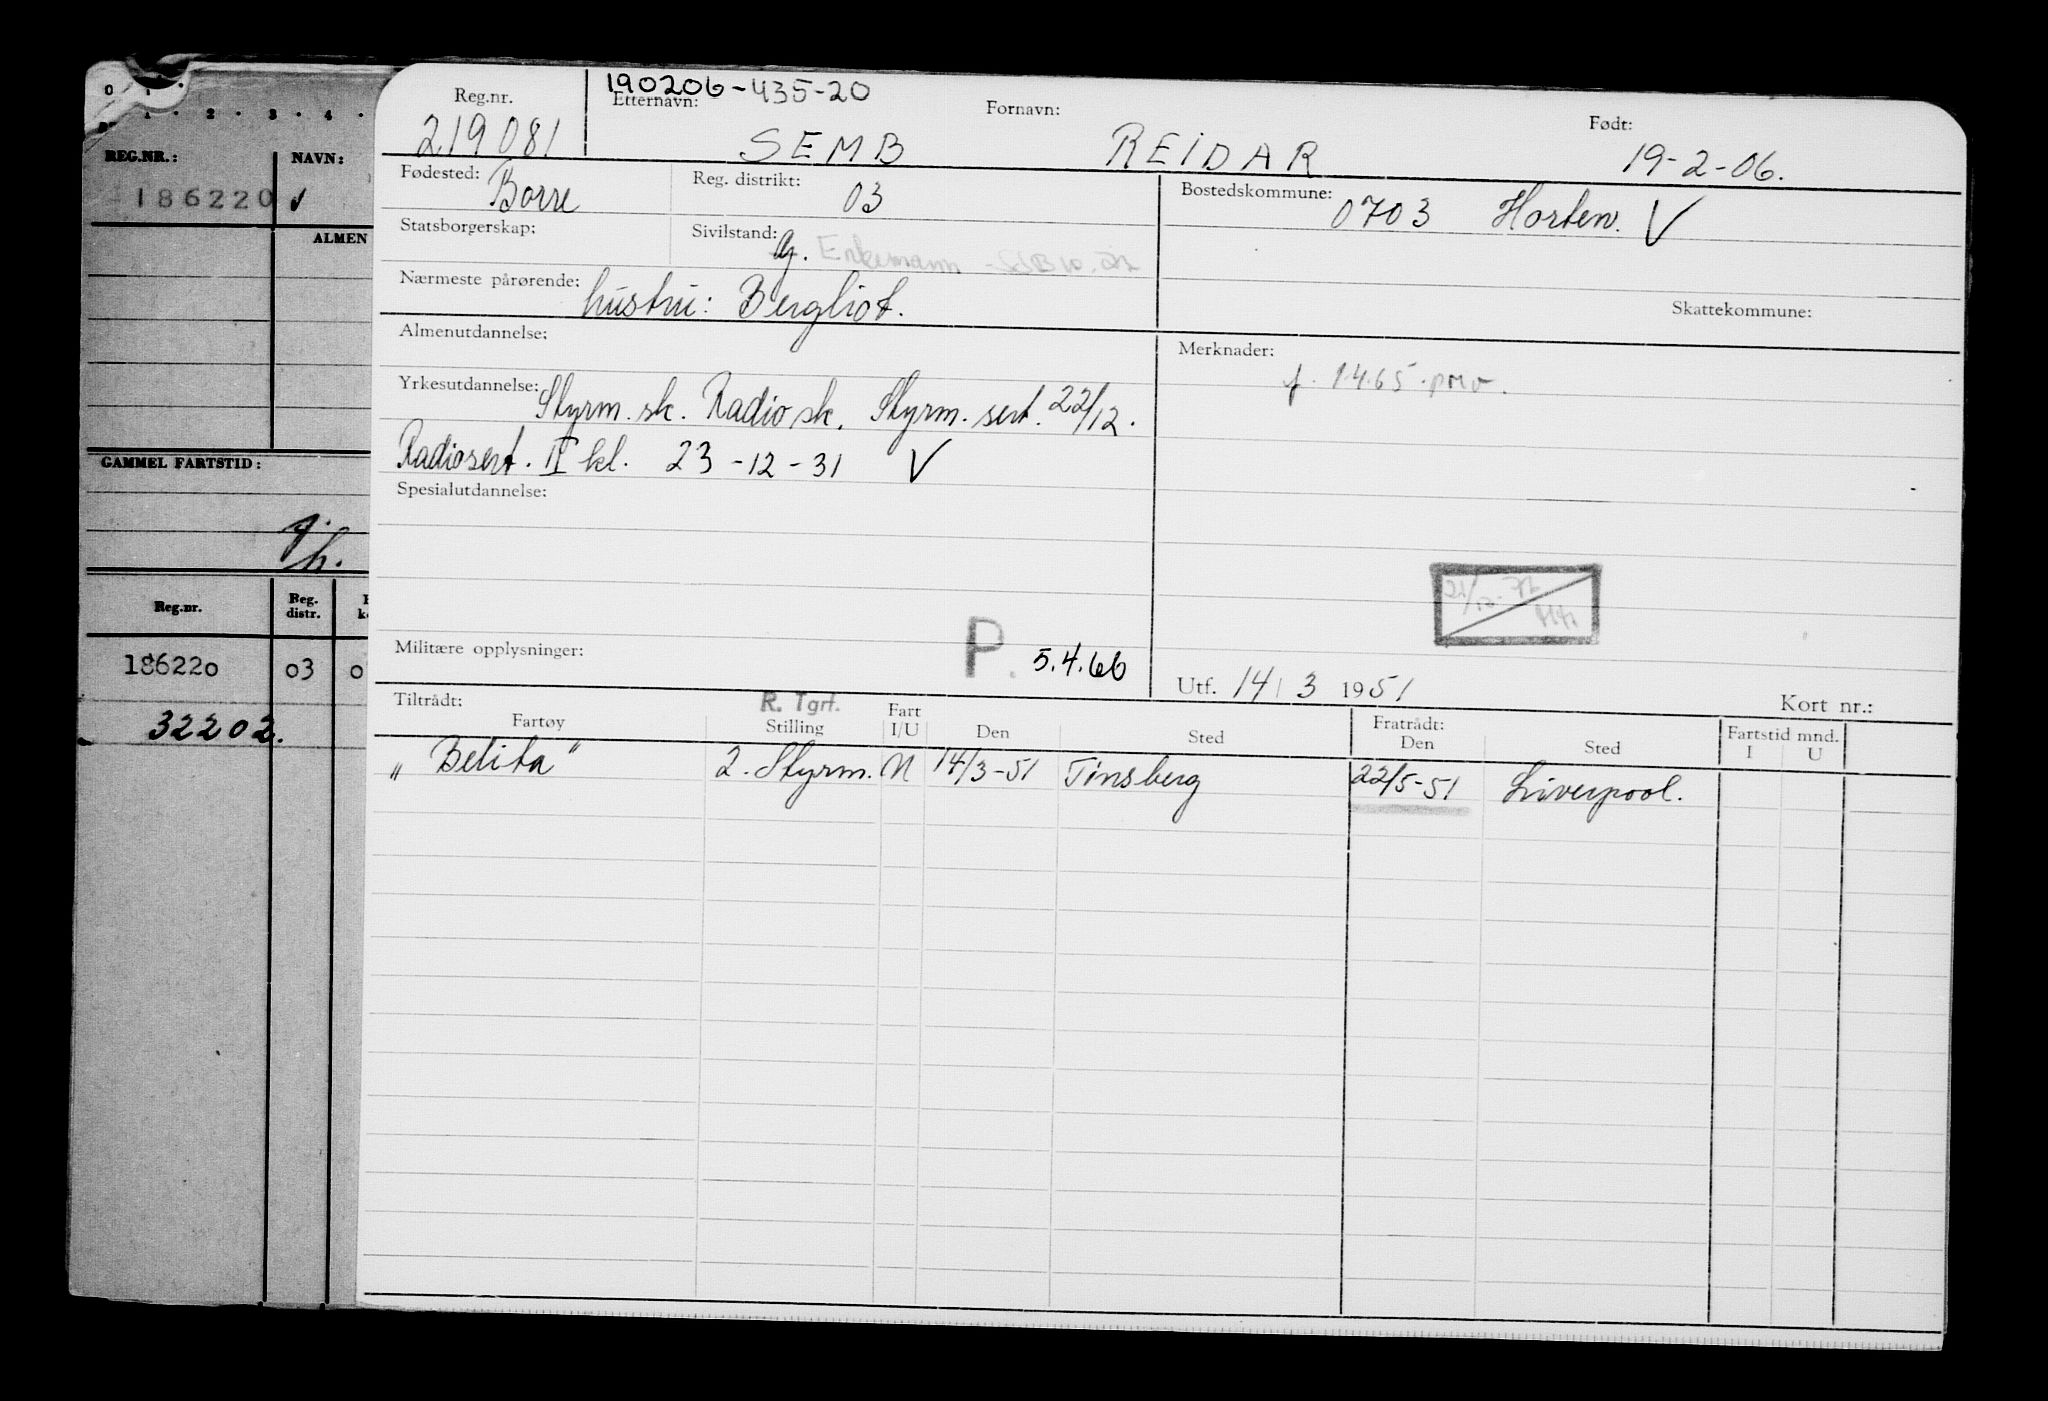 190206-435-20
Reg.nr. Etternavn: Fornavn: Født:
219081 SEMB REIDAR 19-2-06.
Fødested: Borre Reg. distrikt: 03 Bostedskommune: 0703 Horten. V
Statsborgerskap: Sivilstand: g. Enkemann
Nærmeste pårørende: hustru: Bergliot. Skattekommune:
Almenutdannelse: Merknader:
f. 1.4.65.
Yrkesutdannelse: Styrm. sk. Radio sk. Styrm. sert. 22/12.
Radiosert. II kl. 23-12-31 V
Spesialutdannelse:
21/12-72
Militære opplysninger: P. 5.4.66
Utf. 14/3 1951 Kort nr.:
Tiltrådt: R. Tgrf. Fart Fratrådt: Fartstid mnd.
Fartøy Stilling I/U Den Sted Den Sted I U
„Belita” 2. Styrm. N 14/3-51 Tønsberg 22/5-51 Liverpool.
0 1 · 2 · 3 · 4 ·
REG.NR.: NAVN:
186220
ALMEN
GAMMEL FARTSTID:
Reg.nr. Reg. distr.
186220 03 0
32202.